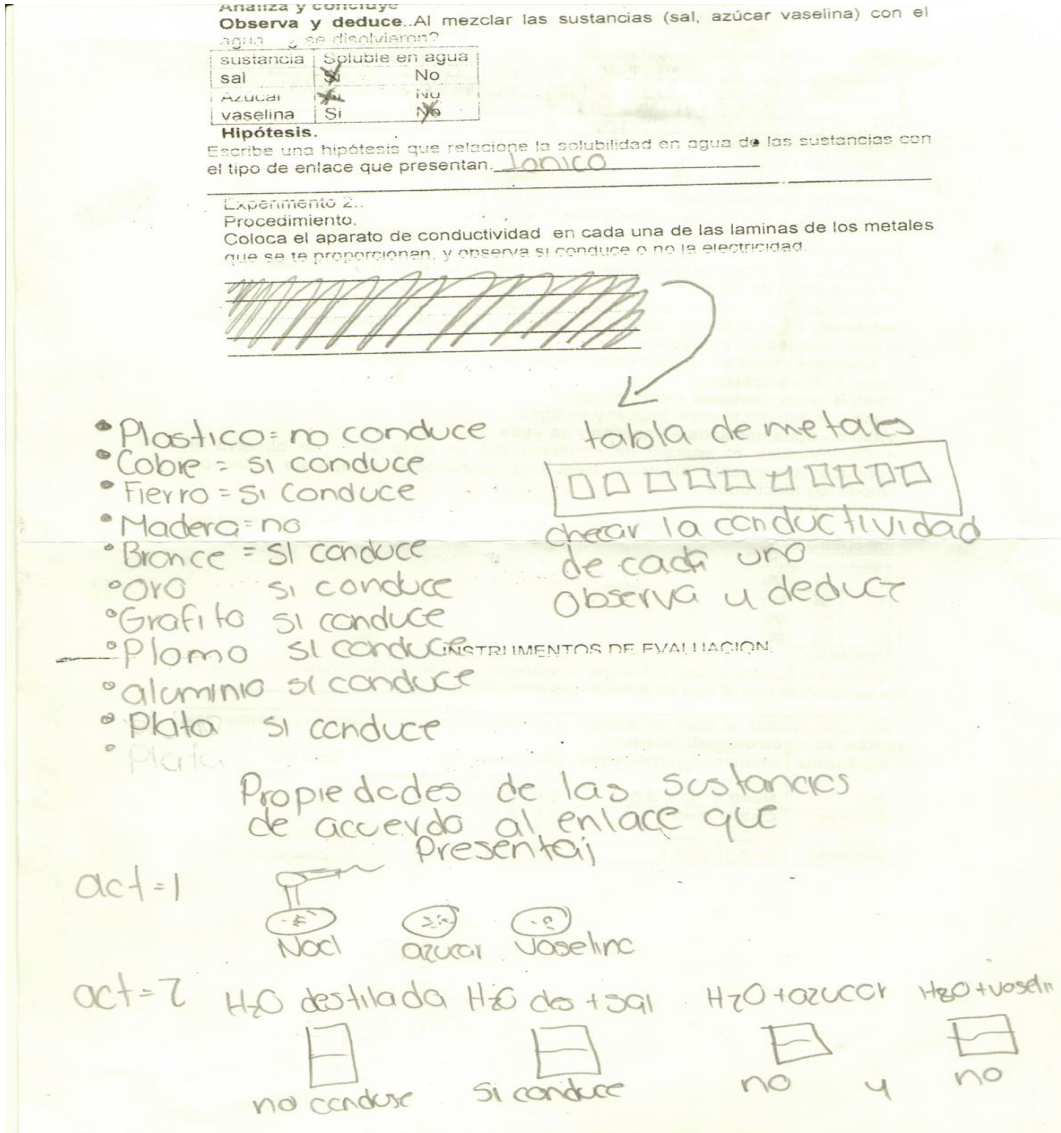 Analiza y concluye
Observa y deduce..Al mezclar las sustancias (sal, azúcar vaselina) con el
agua ¿ se disolvieron?
sustancia Soluble en agua
sal Si No
Azúcar Si No
vaselina Si No
Hipótesis.
Escribe una hipótesis que relacione la solubilidad en agua de las sustancias con
el tipo de enlace que presentan. Ionico
Experimento 2..
Procedimiento.
Coloca el aparato de conductividad en cada una de las laminas de los metales
que se te proporcionan, y observa si conduce o no la electricidad.
tabla de metales
checar la conductividad
de cada uno
Observa y deduce
• Plastico = no conduce
• Cobre = si conduce
• Fierro = si conduce
• Madera = no
• Bronce = si conduce
• oro si conduce
• Grafito si conduce
• Plomo si conduce
INSTRUMENTOS DE EVALUACION.
• aluminio si conduce
• Plata si conduce
• Plata
Propiedades de las sustancias
de acuerdo al enlace que
Presentaj
act=1
Nacl azucar Vaselina
act=2 H2O destilada H2O des + sal H2O + azucar H2O + vaselin
no conduse si conduce no y no